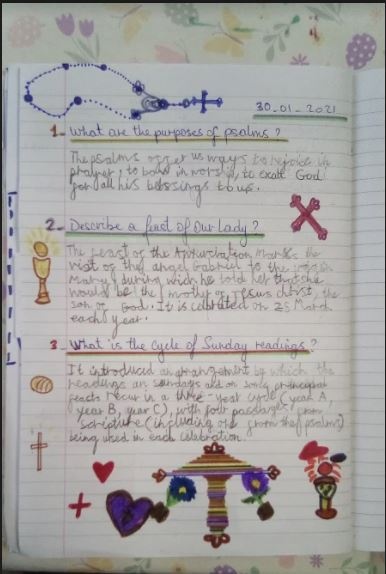 30-01-2021
1- What are the purposes of psalms?
The psalms offer us ways to rejoice in
prayer, to bow in worship, to exalt God
for all his blessings to us.
2- Describe a feast of Our Lady?
The feast of the Annunciation marks the
visit of the angel Gabriel to the
Mary, during wich he told her that she
would be the mother of Jesus christ, the
son of God. It is celbrated on 25 March
each year.
3. What is the cycle of Sunday readings?
It introduced an arrangement by which the
readings on sundays and on some principal
feasts recur in a three-year cycle (year A,
year B, year C), with four passages from
scripture (including one from the psalms)
being used in each celebration